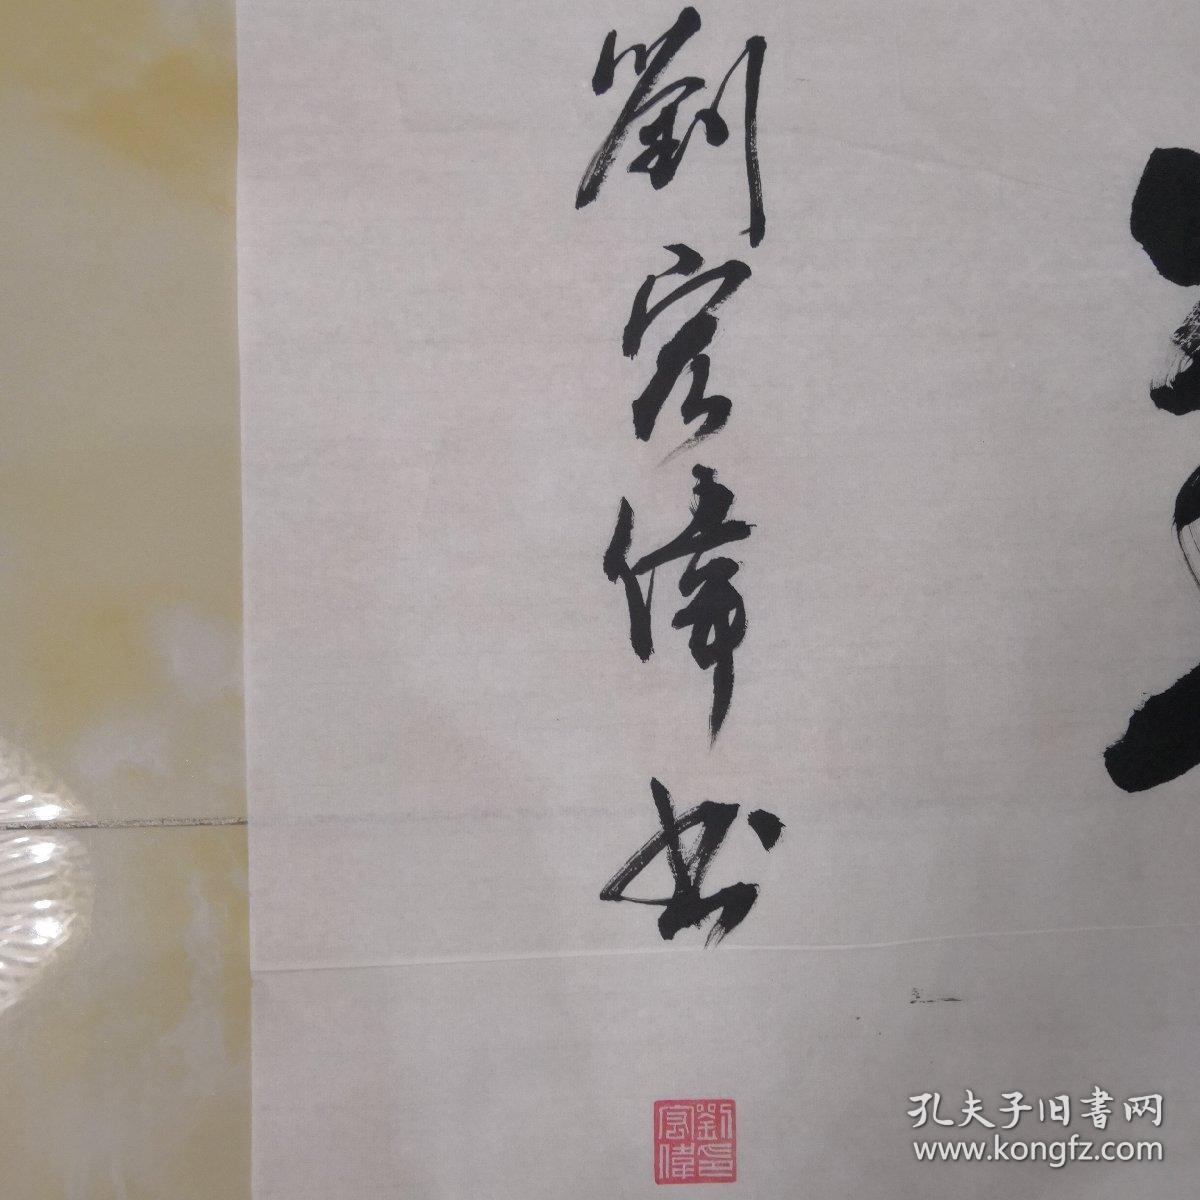 劉宏偉書
劉印
宏偉
孔夫子旧書网
www.kongfz.com